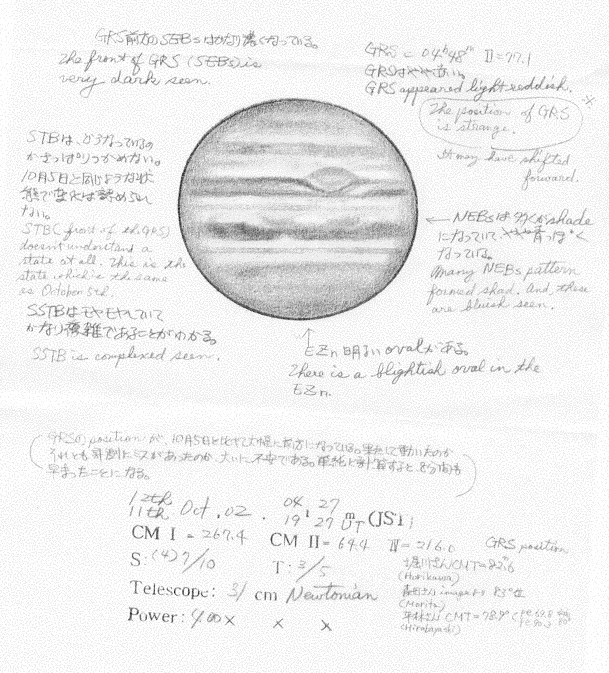 GRS前方のSEBsはかなり濃くなっている。
The front of GRS (SEBs) is
very dark seen.
GRS = 04h48m II=77.1
GRSはやや赤い。
GRS appeared light reddish.
The position of GRS
is strange.
It may have shifted
forward.
STBは、どうなっているの
かさっぱりつかめない。
10月5日と同じような状
態で変化は認められ
ない。
STB (front of the GRS)
doesn't understand a
state at all. This is the
state which is the same
as October 5th.
SSTBはモヤモヤしていて
かなり複雑であることがわかる。
SSTB is complexed seen.
← NEBsは多くがshade
になっていて、やや青っぽく
なっている。
Many NEBs pattern
formed shad. And, these
are bluish seen.
EZn明るいovalがある。
There is a blightish oval in the
EZn.
GRSのpositionが、10月5日と比べて大幅に前方になっている。果たして動いたのか
それとも計測にミスがあったのか、大いに不安である。単純に計算すると、8分間も
早まったことになる。
12th 04 27
11th Oct. 02. 19h 27m UT (JST)
CM I = 267.4 CM II = 64.4 III = 216.0 GRS position
S: (4)7/10 T: 3/5 堀川さん CMT = 82.6
(Horikawa)
Telescope: 31 cm Newtonian 森田さん image 83°位
(Morita)
Power: 400× × × 平林さん CMT = 78.9°
(Hirabayashi)